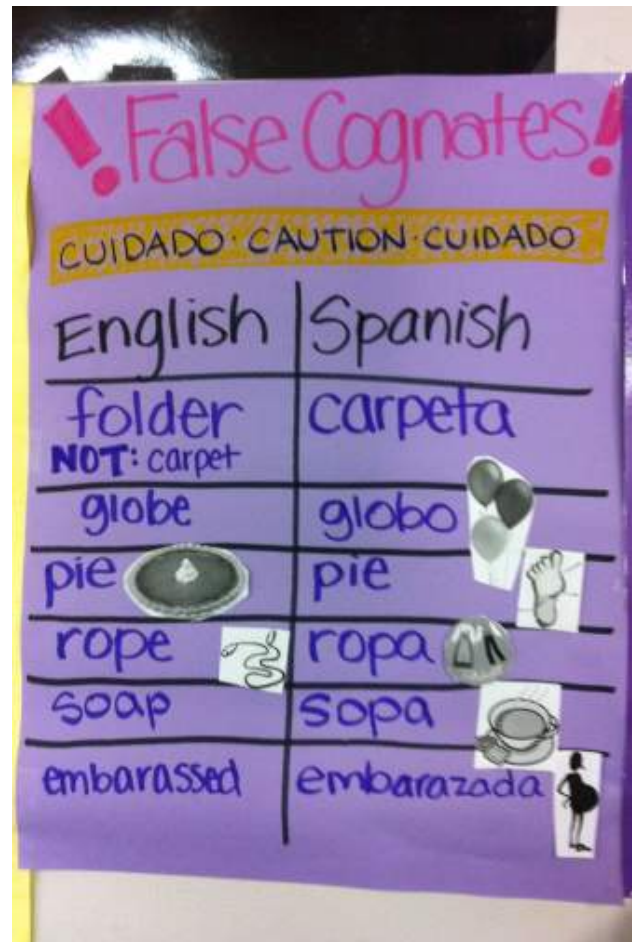 ! False Cognates!
CUIDADO · CAUTION · CUIDADO
English Spanish
folder carpeta
NOT: carpet
globe globo
pie pie
rope ropa
soap sopa
embarassed embarazada